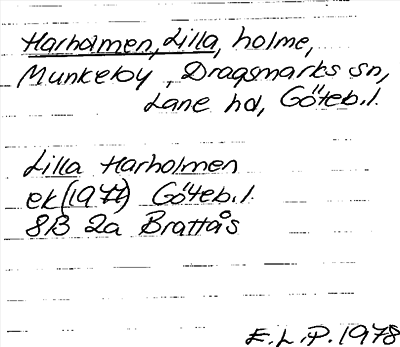 Harholmen, Lilla, holme,
Munkeby, Dragsmarks sn,
Lane hd, Göteb.l.
Lilla Harholmen
ek (1977) Göteb.l.
8B 2a Brattås
E.L.P. 1978